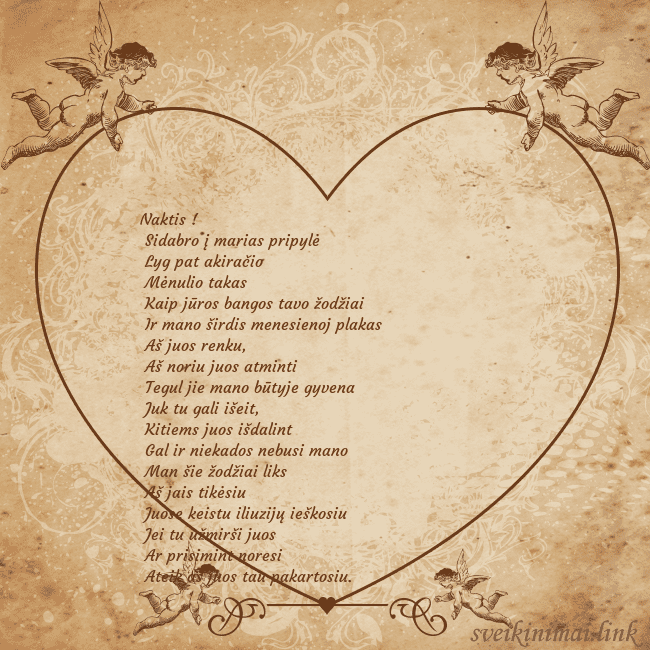 Naktis !
Sidabro į marias pripylė
Lyg pat akiračio
Mėnulio takas
Kaip jūros bangos tavo žodžiai
Ir mano širdis menesienoj plakas
Aš juos renku,
Aš noriu juos atminti
Tegul jie mano būtyje gyvena
Juk tu gali išeit,
Kitiems juos išdalint
Gal ir niekados nebusi mano
Man šie žodžiai liks
Aš jais tikėsiu
Juose keistu iliuzijų ieškosiu
Jei tu užmirši juos
Ar prisimint noresi
Ateik aš juos tau pakartosiu.
sveikinimai.link